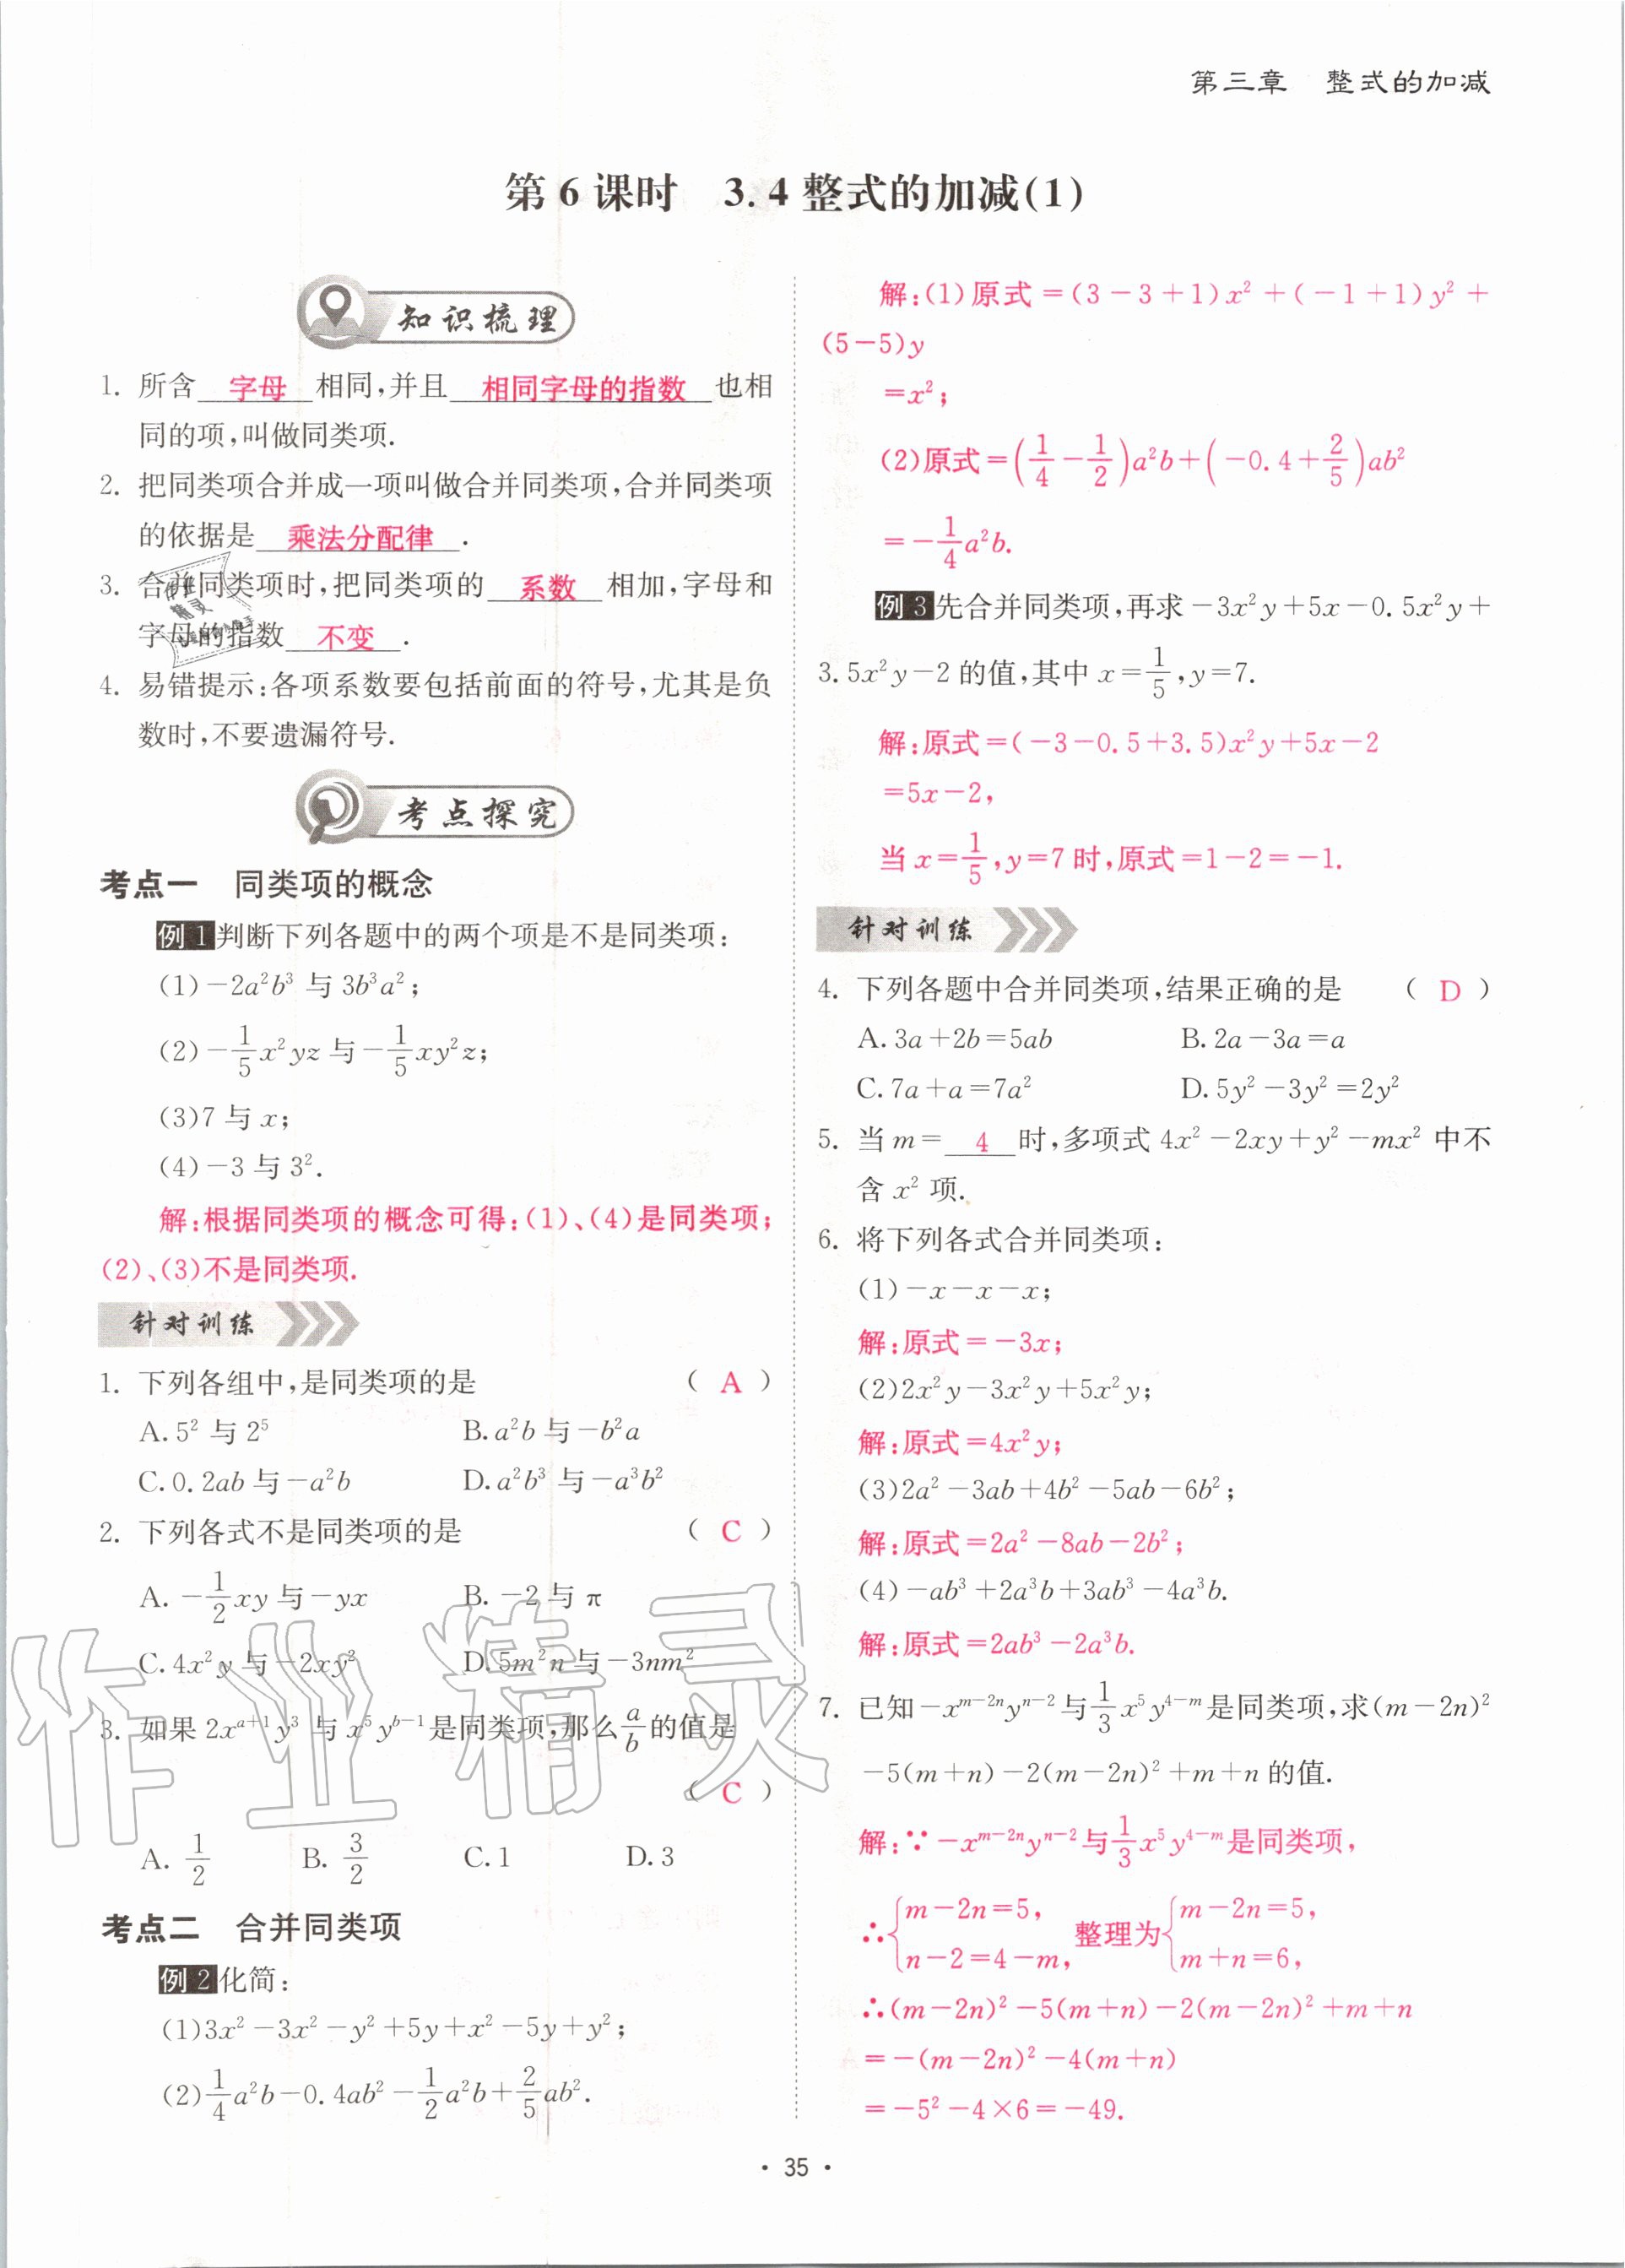 第三章 整式的加减
第 6 课时 3.4 整式的加减(1)
知识梳理
1. 所含 字母 相同,并且 相同字母的指数 也相
同的项,叫做同类项.
2. 把同类项合并成一项叫做合并同类项,合并同类项
的依据是 乘法分配律 .
3. 合并同类项时,把同类项的 系数 相加,字母和
字母的指数 不变 .
4. 易错提示:各项系数要包括前面的符号,尤其是负
数时,不要遗漏符号.
考点探究
考点一 同类项的概念
例 1 判断下列各题中的两个项是不是同类项:
(1)-2a²b³ 与 3b³a²;
(2)-1/5x²yz 与-1/5xy²z;
(3)7 与 x;
(4)-3 与 3².
解:根据同类项的概念可得:(1)、(4)是同类项;
(2)、(3)不是同类项.
针对训练
1. 下列各组中,是同类项的是 ( A )
A. 5² 与 2⁵ B. a²b 与-b²a
C. 0.2ab 与-a²b D. a²b³ 与-a³b²
2. 下列各式不是同类项的是 ( C )
A. -1/2xy 与-yx B. -2 与 π
C. 4x²y 与-2xy² D. 5m²n 与-3nm²
3. 如果 2xᵃ⁺¹y³ 与 x⁵yᵇ⁻¹是同类项,那么a/b的值是
( C )
A. 1/2 B. 3/2 C. 1 D. 3
考点二 合并同类项
例 2 化简:
(1)3x²-3x²-y²+5y+x²-5y+y²;
(2)1/4a²b-0.4ab²-1/2a²b+2/5ab².
解:(1)原式=(3-3+1)x²+(-1+1)y²+
(5-5)y
=x²;
(2)原式=(1/4-1/2)a²b+(-0.4+2/5)ab²
=-1/4a²b.
例 3 先合并同类项,再求-3x²y+5x-0.5x²y+
3.5x²y-2 的值,其中 x=1/5,y=7.
解:原式=(-3-0.5+3.5)x²y+5x-2
=5x-2,
当 x=1/5,y=7 时,原式=1-2=-1.
针对训练
4. 下列各题中合并同类项,结果正确的是 ( D )
A. 3a+2b=5ab B. 2a-3a=a
C. 7a+a=7a² D. 5y²-3y²=2y²
5. 当 m= 4 时,多项式 4x²-2xy+y²-mx² 中不
含 x² 项.
6. 将下列各式合并同类项:
(1)-x-x-x;
解:原式=-3x;
(2)2x²y-3x²y+5x²y;
解:原式=4x²y;
(3)2a²-3ab+4b²-5ab-6b²;
解:原式=2a²-8ab-2b²;
(4)-ab³+2a³b+3ab³-4a³b.
解:原式=2ab³-2a³b.
7. 已知-xᵐ⁻²ⁿyⁿ⁻²与1/3x⁵y⁴⁻ᵐ是同类项,求(m-2n)²
-5(m+n)-2(m-2n)²+m+n 的值.
解:∵-xᵐ⁻²ⁿyⁿ⁻²与1/3x⁵y⁴⁻ᵐ是同类项,
∴{m-2n=5, n-2=4-m, 整理为{m-2n=5, m+n=6,
∴(m-2n)²-5(m+n)-2(m-2n)²+m+n
=-(m-2n)²-4(m+n)
=-5²-4×6=-49.
作业精灵
· 35 ·